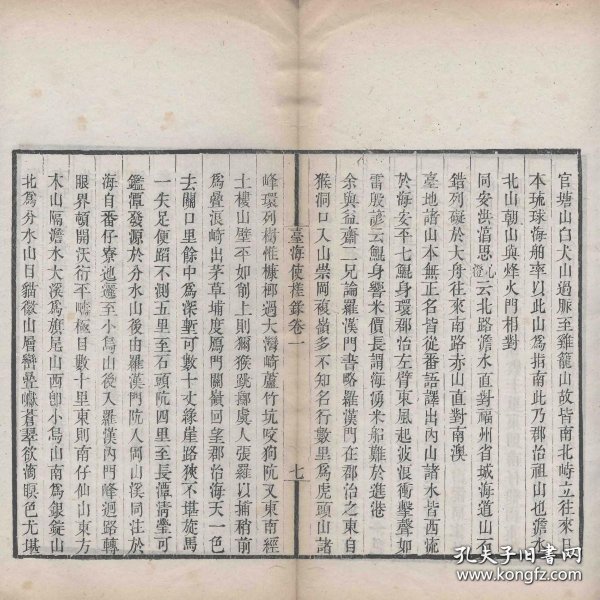 官塘山白犬山過脈至雞龍山故皆南北峙立往來日
本琉球海舶率以此山為指南此乃郡治祖山也澹水
北山朝山與烽火門相對
同安洪蒨思心澄云北路澹水直對福州省城海道山石
錯列礙於大舟往來南路赤山直對南澳
臺地諸山本無正名皆從番語譯出內山諸水皆西流
於海安平七鯤身環郡治左臂東風起波浪衝擊聲如
雷殷諺云鯤身響米價長謂海湧米船難於進港
余與益齋二兄論羅漢門書略羅漢門在郡治之東自
猴洞口入山崇岡複嶺多不知名行數里為虎頭山諸
臺海使槎錄卷一
七
峰環列樹惟槺榔過大灣崎蘆竹坑咬狗阬又東南經
土樓山壁平如削上則獼猴跳擲虞人張羅以捕稍前
為疊浪崎出茅草埔度鴈門關嶺回望郡治海天一色
去關口里餘中為深塹可數十丈緣崖路狹不堪旋馬
一失足便蹈不測五里至石頭阬四里至長潭清瑩可
鑑潭發源於分水山後由羅漢門阬入岡山溪同注於
海自番仔寮迤邐至小烏山後入羅漢內門峰迴路轉
眼界頓開沃衍平疇極目數十里東則南仔仙山東方
木山隔澹水大溪為旗尾山西卽小烏山南為銀錠山
北為分水山目貓徽山層巒疊巘蒼翠欲滴瞑色尤堪
孔夫子旧書网
www.kongfz.com